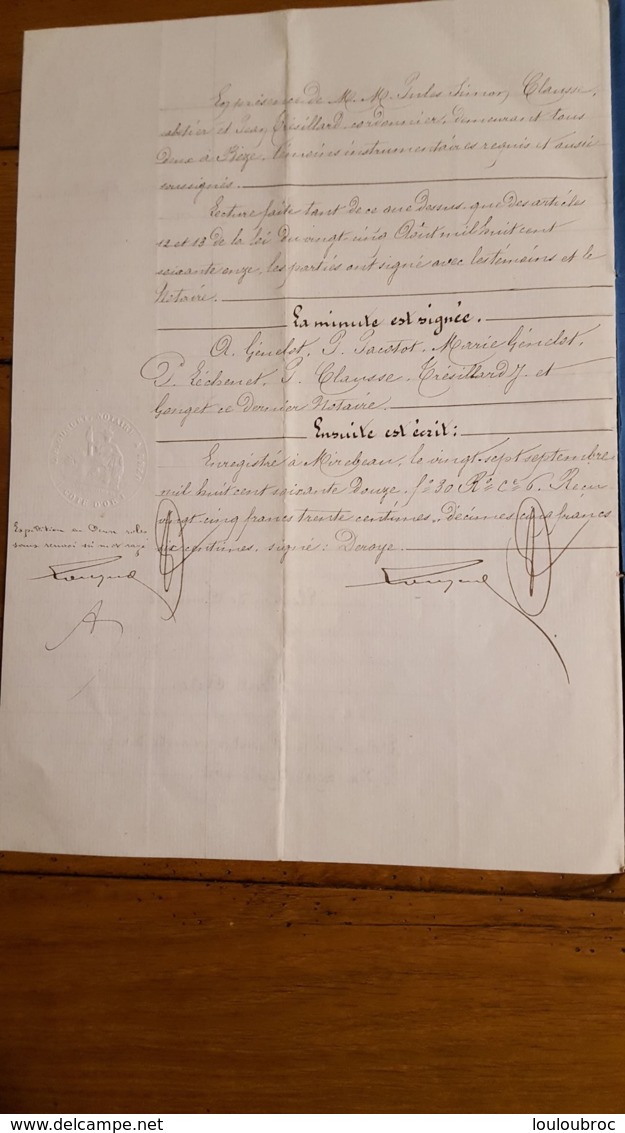 En présence de M. M. Jules Simon Clausse,
sabotier et Jean Trésillard cordonnier, demeurant tous
deux à Bèze, témoins instrumentaires requis et aussi
soussignés.
Lecture faite tant de ce que dessus, que des articles
12 et 13 de la loi du vingt-cinq Août mil huit cent
soixante onze, les parties ont signé avec les témoins et le
Notaire.
La minute est signée.
A. Génelot, P. Jacotot, Marie Génelot,
P. Léchenet, J. Clausse, Trésillard J. et
Gouget ce dernier Notaire.
Ensuite est écrit:
Enregistré à Mirebeau, le vingt sept septembre
mil huit cent soixante douze, f° 30 R° Cse 6. Reçu
vingt cinq francs trente centimes, décimes cinq francs
six centimes, signé: Deroye.
Expédition en deux rôles
sans renvoi ni mot rayé
COTE D'OR
delcampe.net
louloubroc